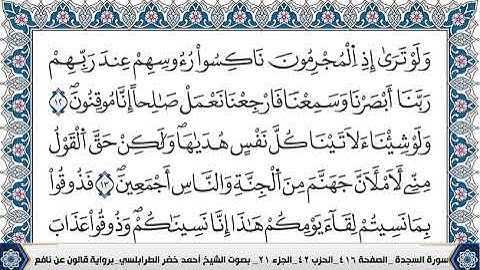 وَلَوْ تَرَىٰٓ إِذِ اِ۬لْمُجْرِمُونَ نَاكِسُواْ رُءُوسِهِمْ عِندَ رَبِّهِمْ
رَبَّنَآ أَبْصَرْنَا وَسَمِعْنَا فَارْجِعْنَا نَعْمَلْ صَٰلِحاً اِنَّا مُوقِنُونَۖ ١٢
وَلَوْ شِئْنَا ءَلَاتَيْنَا كُلَّ نَفْسٍ هُدَيٰهَاۖ وَلَٰكِنْ حَقَّ اَ۬لْقَوْلُ
مِنِّے لَأَمْلَأَنَّ جَهَنَّمَ مِنَ اَ۬لْجِنَّةِ وَالنَّاسِ أَجْمَعِينَۖ ١٣ فَذُوقُواْ
بِمَا نَسِيتُمْ لِقَآءَ يَوْمِكُمْ هَٰذَا إِنَّا نَسِينَٰكُمْۖ وَذُوقُواْ عَذَابَ
سورة السجدة _الصفحة ٤١٦_الحزب ٤٢_الجزء ٢١_ بصوت الشيخ أحمد خضر الطرابلسي_برواية قالون عن نافع